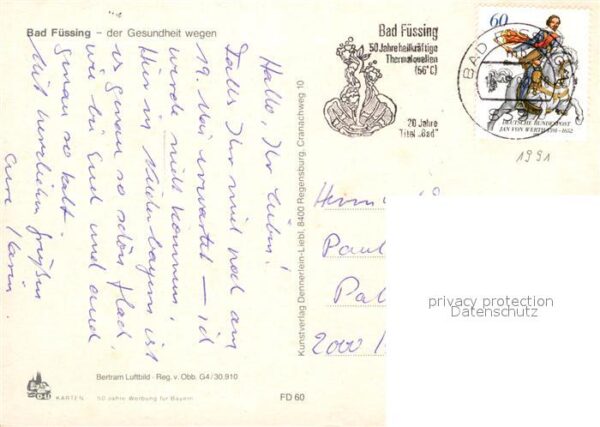 Bad Füssing – der Gesundheit wegen
Hallo Ihr Lieben!
Falls Ihr mich noch am
19. Mai erwartet – ich
werde nicht kommen.
Hier in Niederbayern ist
es genau so schön flach
wie bei Euch und auch
genau so kalt.
Mit herzlichen Grüßen
Eure Karin
Bertram Luftbild · Reg. v. Obb. G4/30.910
KARTEN 50 Jahre Werbung für Bayern
FD 60
Kunstverlag Dennerlein-Liebl, 8400 Regensburg, Cranachweg 10
Bad Füssing
50 Jahre heilkräftige
Thermalquellen
(56°C)
20 Jahre
Titel „Bad"
BAD
60
DEUTSCHE BUNDESPOST
JAN VON WERTH 1591-1652
1991
Paul
2000
privacy protection
Datenschutz